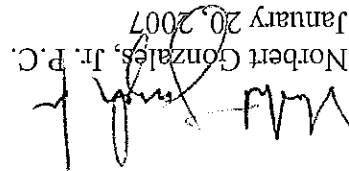 Norbert Gonzales, Jr. P.C.
January 20, 2007